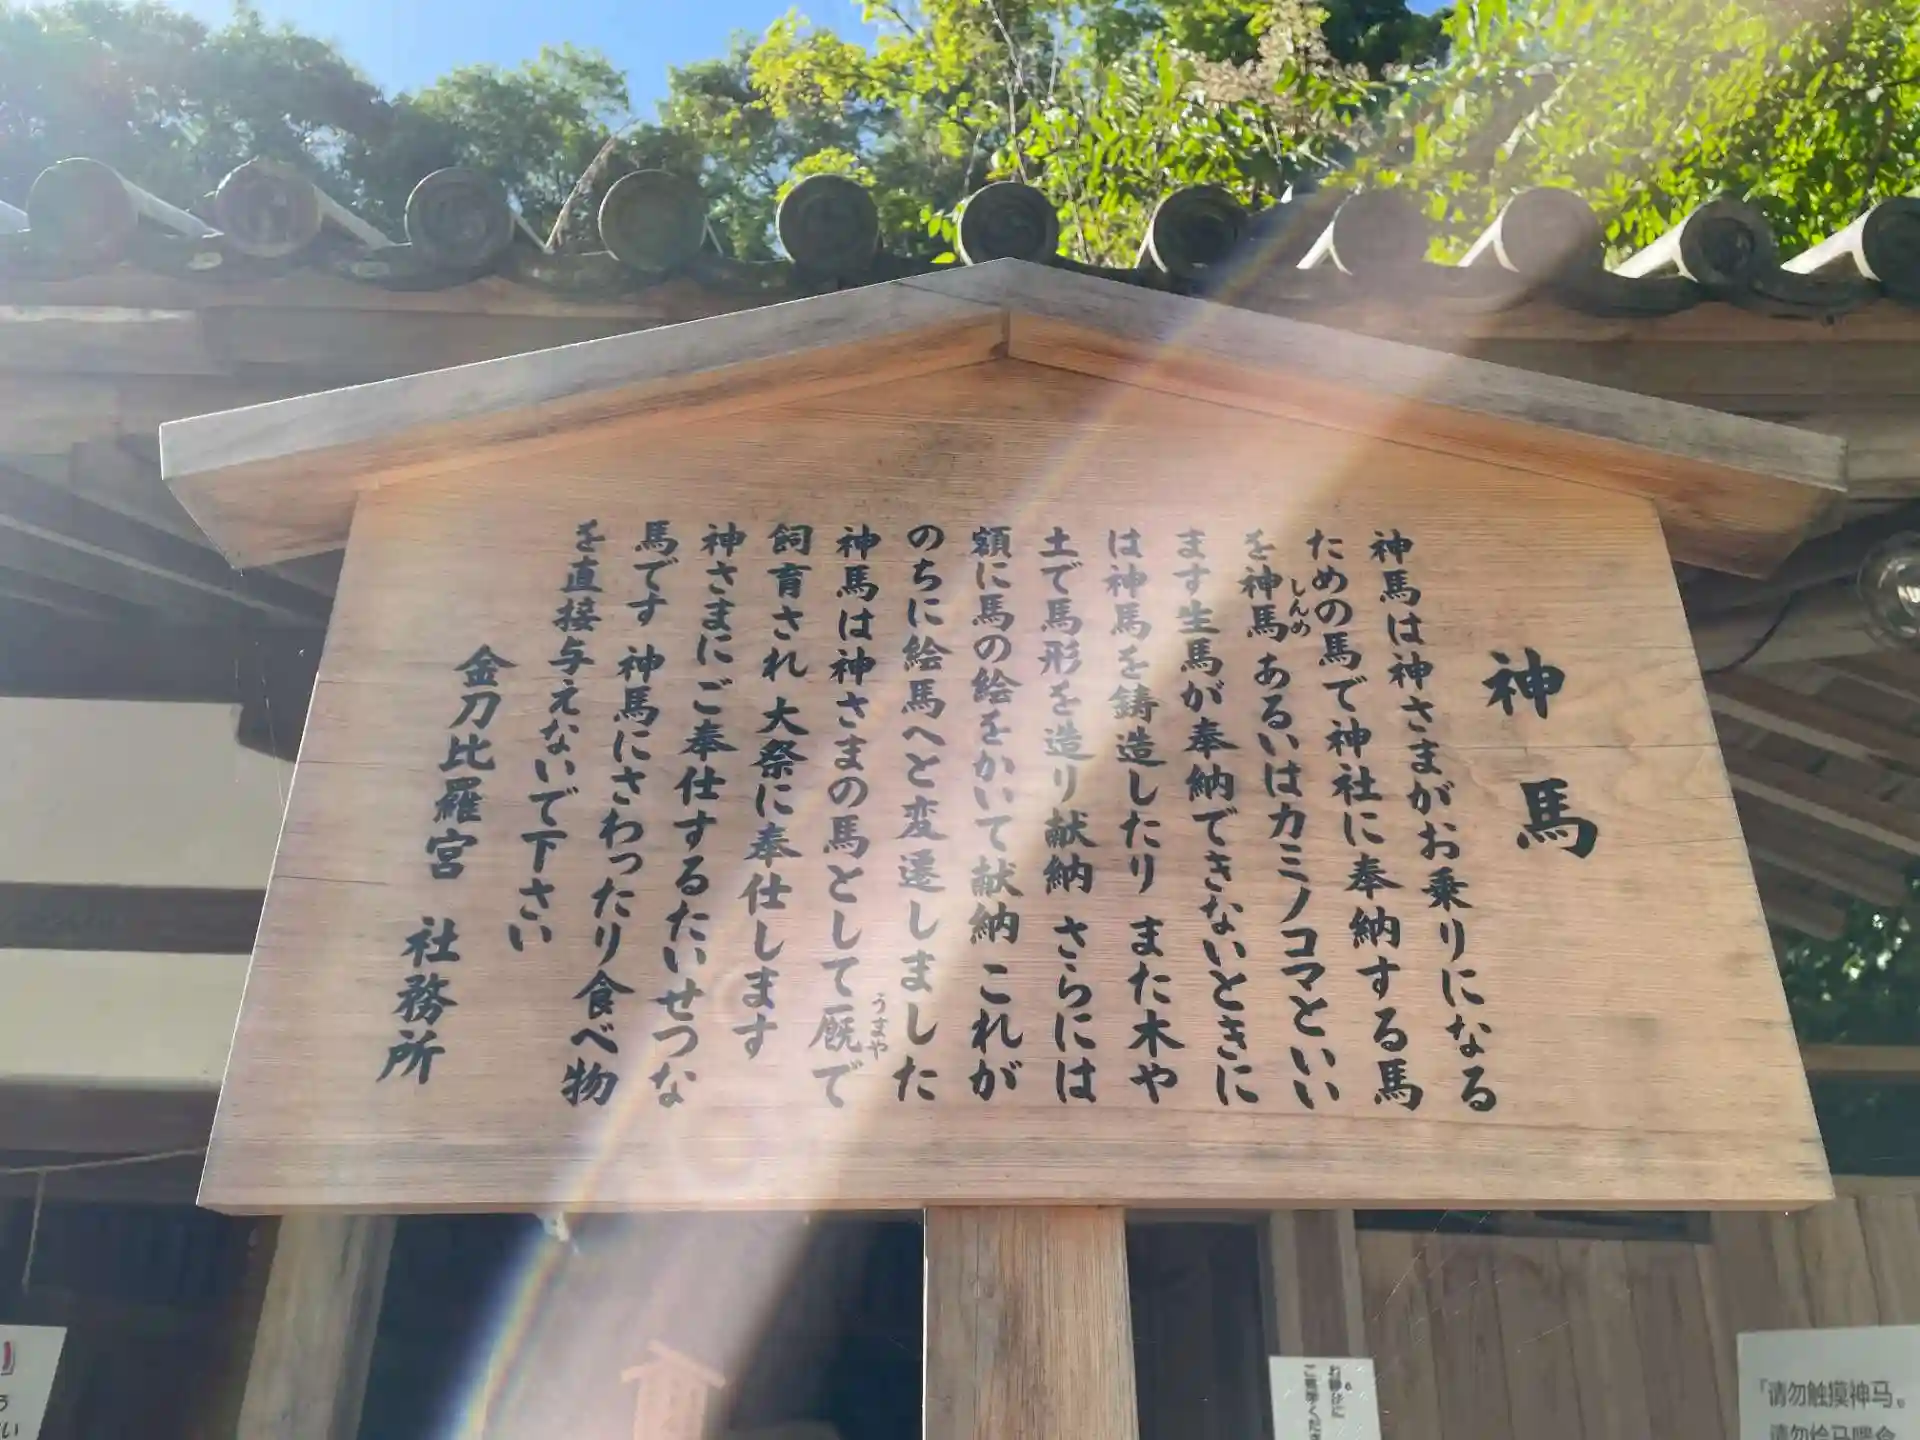 神馬
神馬は神さまがお乗りになる
ための馬で神社に奉納する馬
を神馬 あるいはカミノコマといい
しんめ
ます生馬が奉納できないときに
は神馬を鋳造したり また木や
土で馬形を造り献納 さらには
額に馬の絵をかいて献納 これが
のちに絵馬へと変遷しました
神馬は神さまの馬として厩で
うまや
飼育され 大祭に奉仕します
神さまにご奉仕するたいせつな
馬です 神馬にさわったり食べ物
を直接与えないで下さい
金刀比羅宮 社務所
「请勿触摸神马。